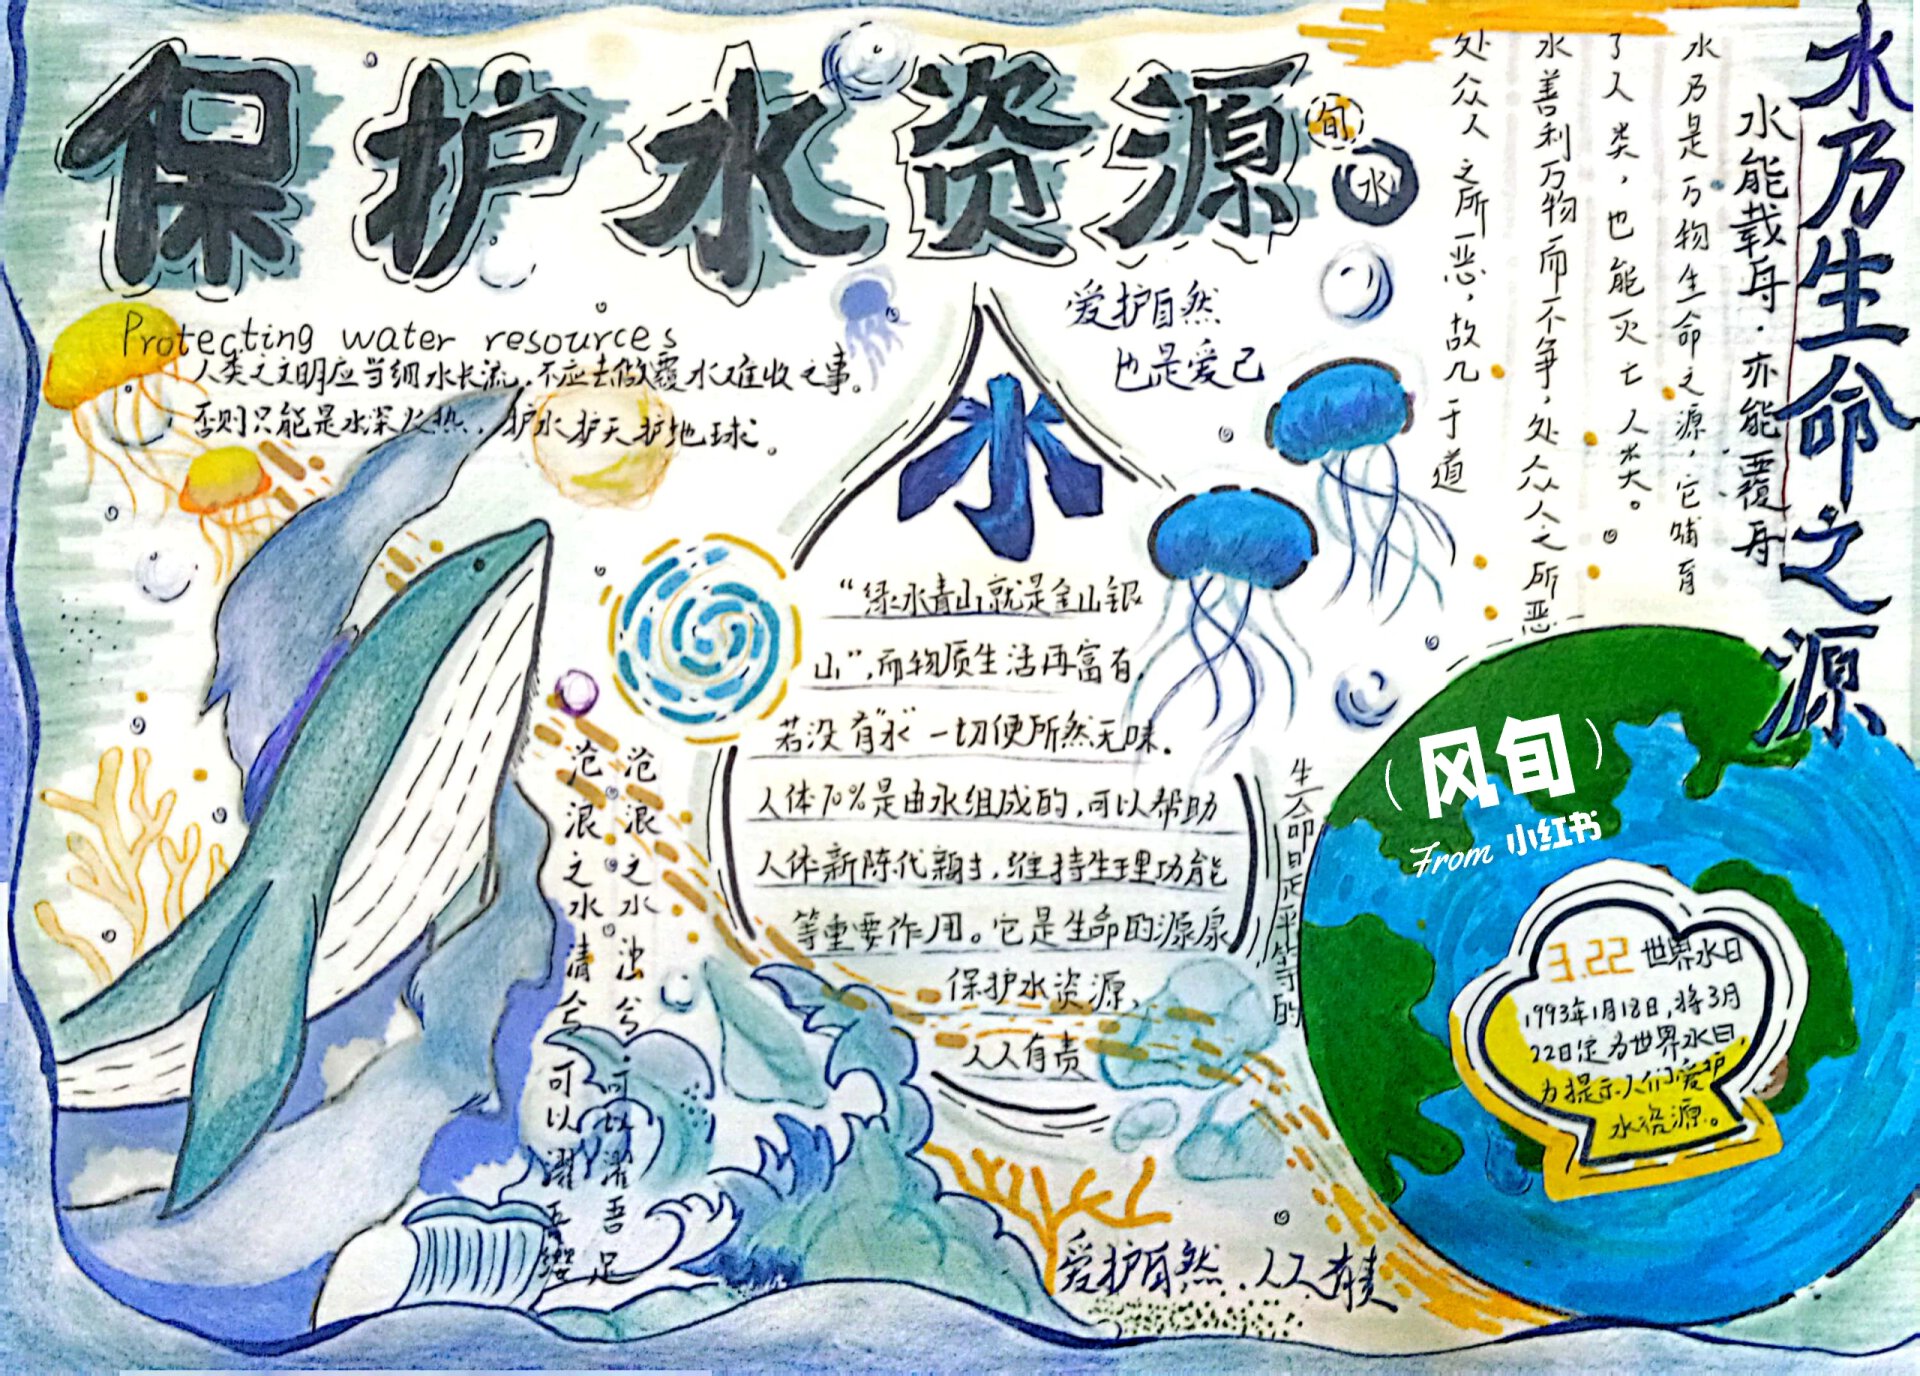 保护水资源
旬
水
Protecting water resources
人类之文明应当细水长流,不应去做覆水难收之事。
否则只能是水深火热,护水护天护地球。
爱护自然
也是爱己
水
“绿水青山就是金山银
山”,而物质生活再富有,
若没有“水”一切便所然无味.
人体70%是由水组成的,可以帮助
人体新陈代谢,维持生理功能
等重要作用。它是生命的源泉
保护水资源、
人人有责
水乃生命之源
水能载舟·亦能覆舟
水乃是万物生命之源,它哺育
了人类,也能灭亡人类。
水善利万物而不争,处众人之所恶
处众人之所恶,故几于道
沧浪之水浊兮可以濯吾足
沧浪之水清兮可以濯吾缨
生命是平等的
(风旬)
From 小红书
3.22 世界水日
1993年1月18日,将3月
22日定为世界水日,
为提示人们爱护
水资源。
爱护自然.人人有责